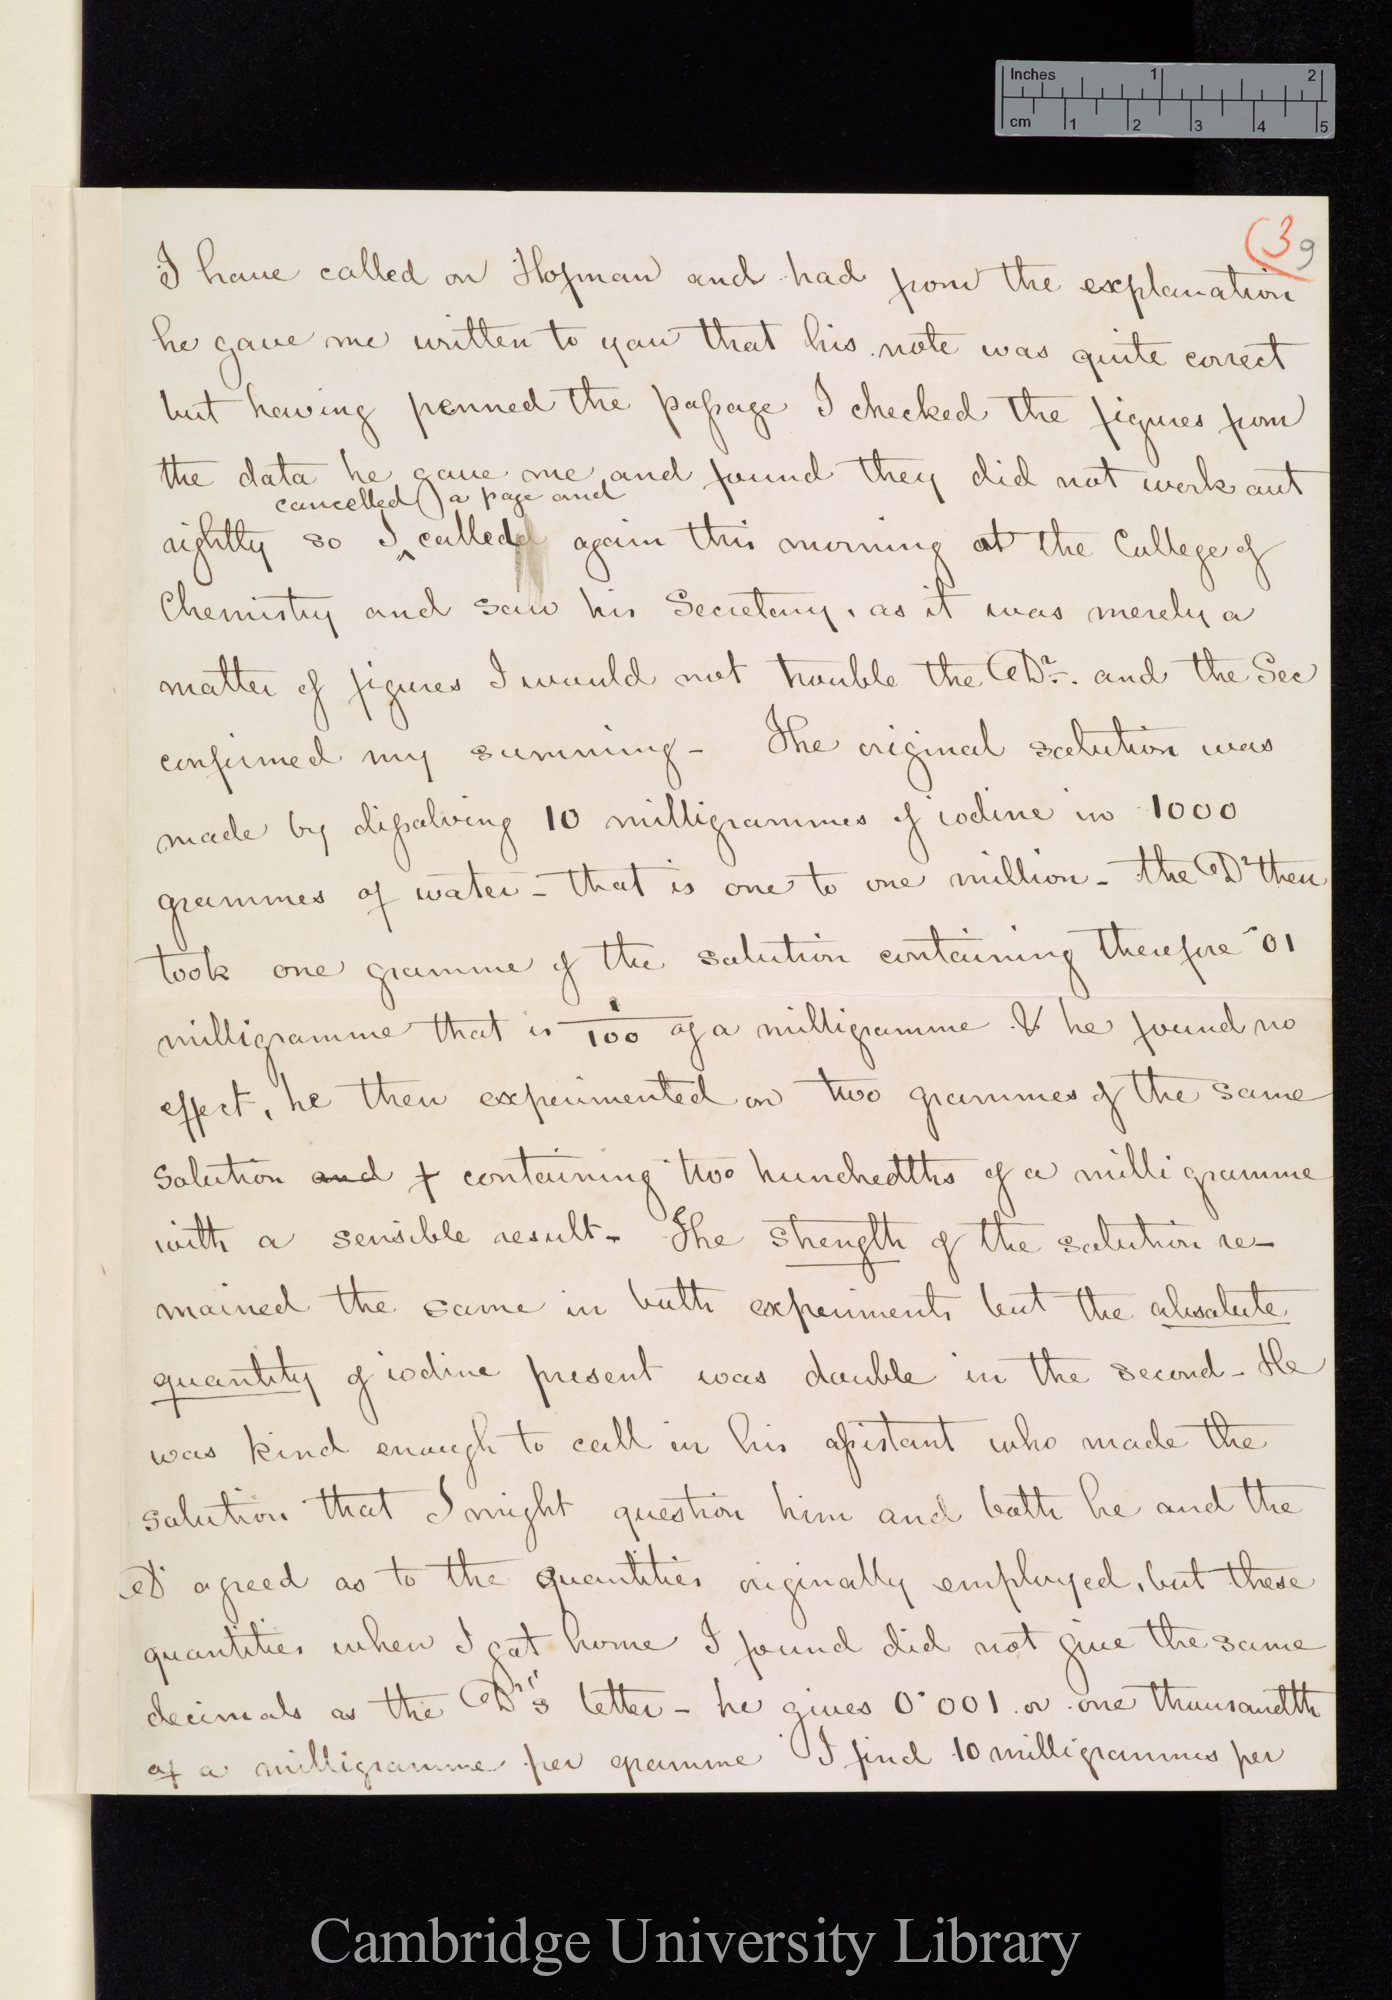 Inches 1 2
cm 1 2 3 4 5
(3 9
I have called on Hofman and had from the explanation
he gave me written to you that his note was quite correct
but having penned the passage I checked the figures from
the data he gave me and found they did not work out
cancelled a page and
rightly so I called again this morning at the College of
Chemistry and saw his Secretary, as it was merely a
matter of figures I would not trouble the Dr. and the Sec
confirmed my summing - The original solution was
made by dissolving 10 milligrammes of iodine in 1000
grammes of water - that is one to one million - the Dr then
took one gramme of the solution containing therefore ·01
milligramme that is 1/100 of a milligramme & he found no
effect, he then experimented on two grammes of the same
Solution and containing two hundredths of a milligramme
with a sensible result - The strength of the solution re-
mained the same in both experiments but the absolute
quantity of iodine present was double in the second - He
was kind enough to call in his assistant who made the
solution that I might question him and both he and the
Dr agreed as to the quantities originally employed, but these
quantities when I got home I found did not give the same
decimals as the Dr's letter - he gives 0·001 or one thousandth
of a milligramme per gramme I find 10 milligrammes per
Cambridge University Library